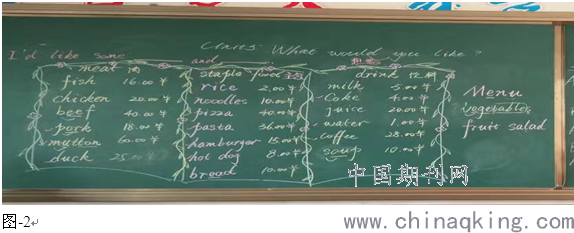 Class What would you like?
I'd like some ___ and ___
meat 肉
fish 16.00¥
chicken 20.00¥
beef 40.00¥
pork 18.00¥
mutton 60.00¥
duck 25.00¥
staple food 主食
rice 2.00¥
noodles 10.00¥
pizza 40.00¥
pasta 36.00¥
hamburger 15.00¥
hot dog 8.00¥
bread 10.00¥
想要
drink 饮料
milk 5.00¥
Coke 4.00¥
juice 20.00¥
water 1.00¥
coffee 28.00¥
soup 10.00¥
Menu
vegetables
fruit salad
中国期刊网
www.chinaqking.com
图-2